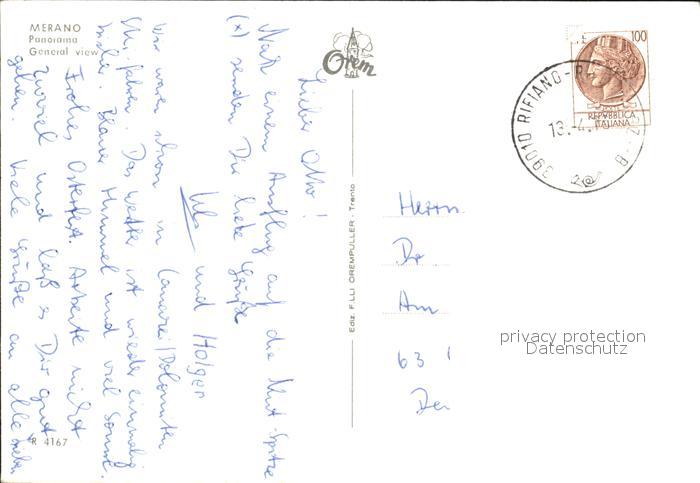 MERANO
Panorama
General view
Orem
Lieber Otto!
Nach einem Ausflug auf die Mut-Spitze
(x) senden Dir liebe Grüße
und Holger
Wir waren schon in Canazei/Dolomiten
Ski-fahren. Das Wetter ist wieder einmalig
bisher. Blauer Himmel und viel Sonne.
Frohes Osterfest. Arbeite nicht
zuviel und laß es Dir gut
gehen. Viele Grüße an alle
R 4167
Ediz. F.LLI OREMPULLER - Trento
100
REPVBBLICA
ITALIANA
39010 RIFIANO-
13.-4.
Herrn
Dr
Am
63
privacy protection
Datenschutz